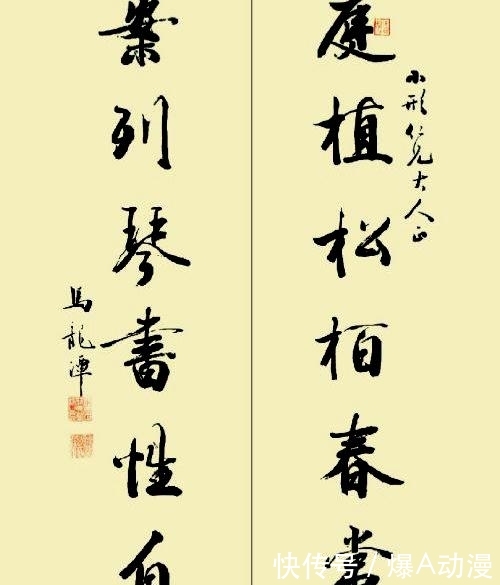 庭植松柏春常
小形仁兄大人正
案列琴書性自
馬龍潭
快传号 / 爆A动漫